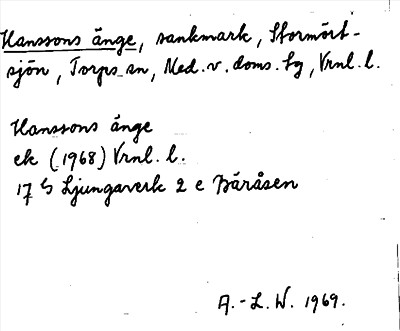 Hanssons änge, sankmark, Stormört-
sjön, Torps sn, Med. v. doms. fg, Vrnl. l.
Hanssons änge
ek (1968) Vrnl. l.
17 G Ljungaverk 2 e Bäråsen
A.-L. W. 1969.